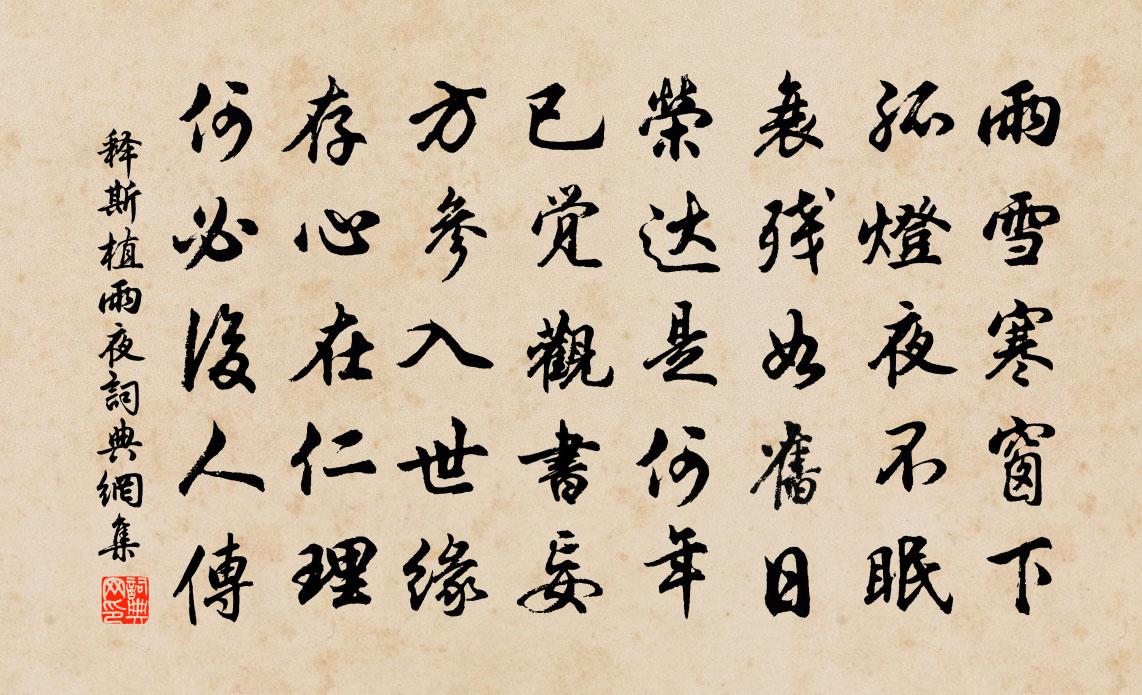 雨雪寒窗下
孤燈夜不眠
衰残如舊日
榮达是何年
已觉觀書妄
方參入世缘
存心在仁理
何必後人傳
释斯植雨夜詞典網集
詞典网印